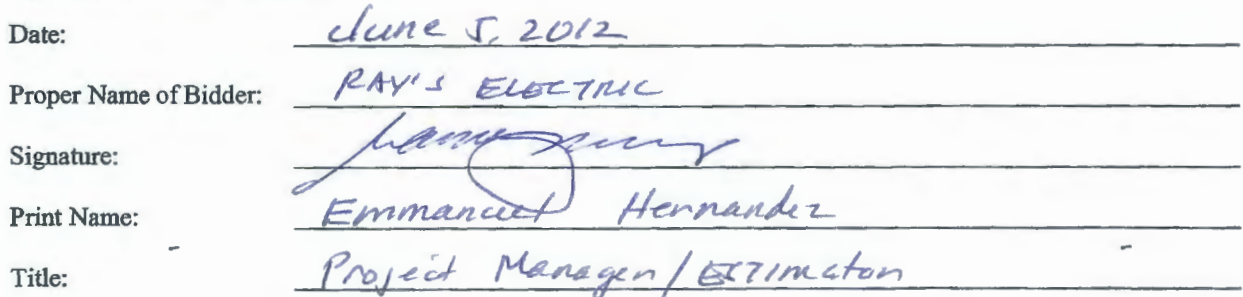 Date: June 5, 2012
Proper Name of Bidder: RAY'S ELECTRIC
Signature:
Print Name: Emmanuel Hernandez
Title: Project Manager/ESTIMATOR